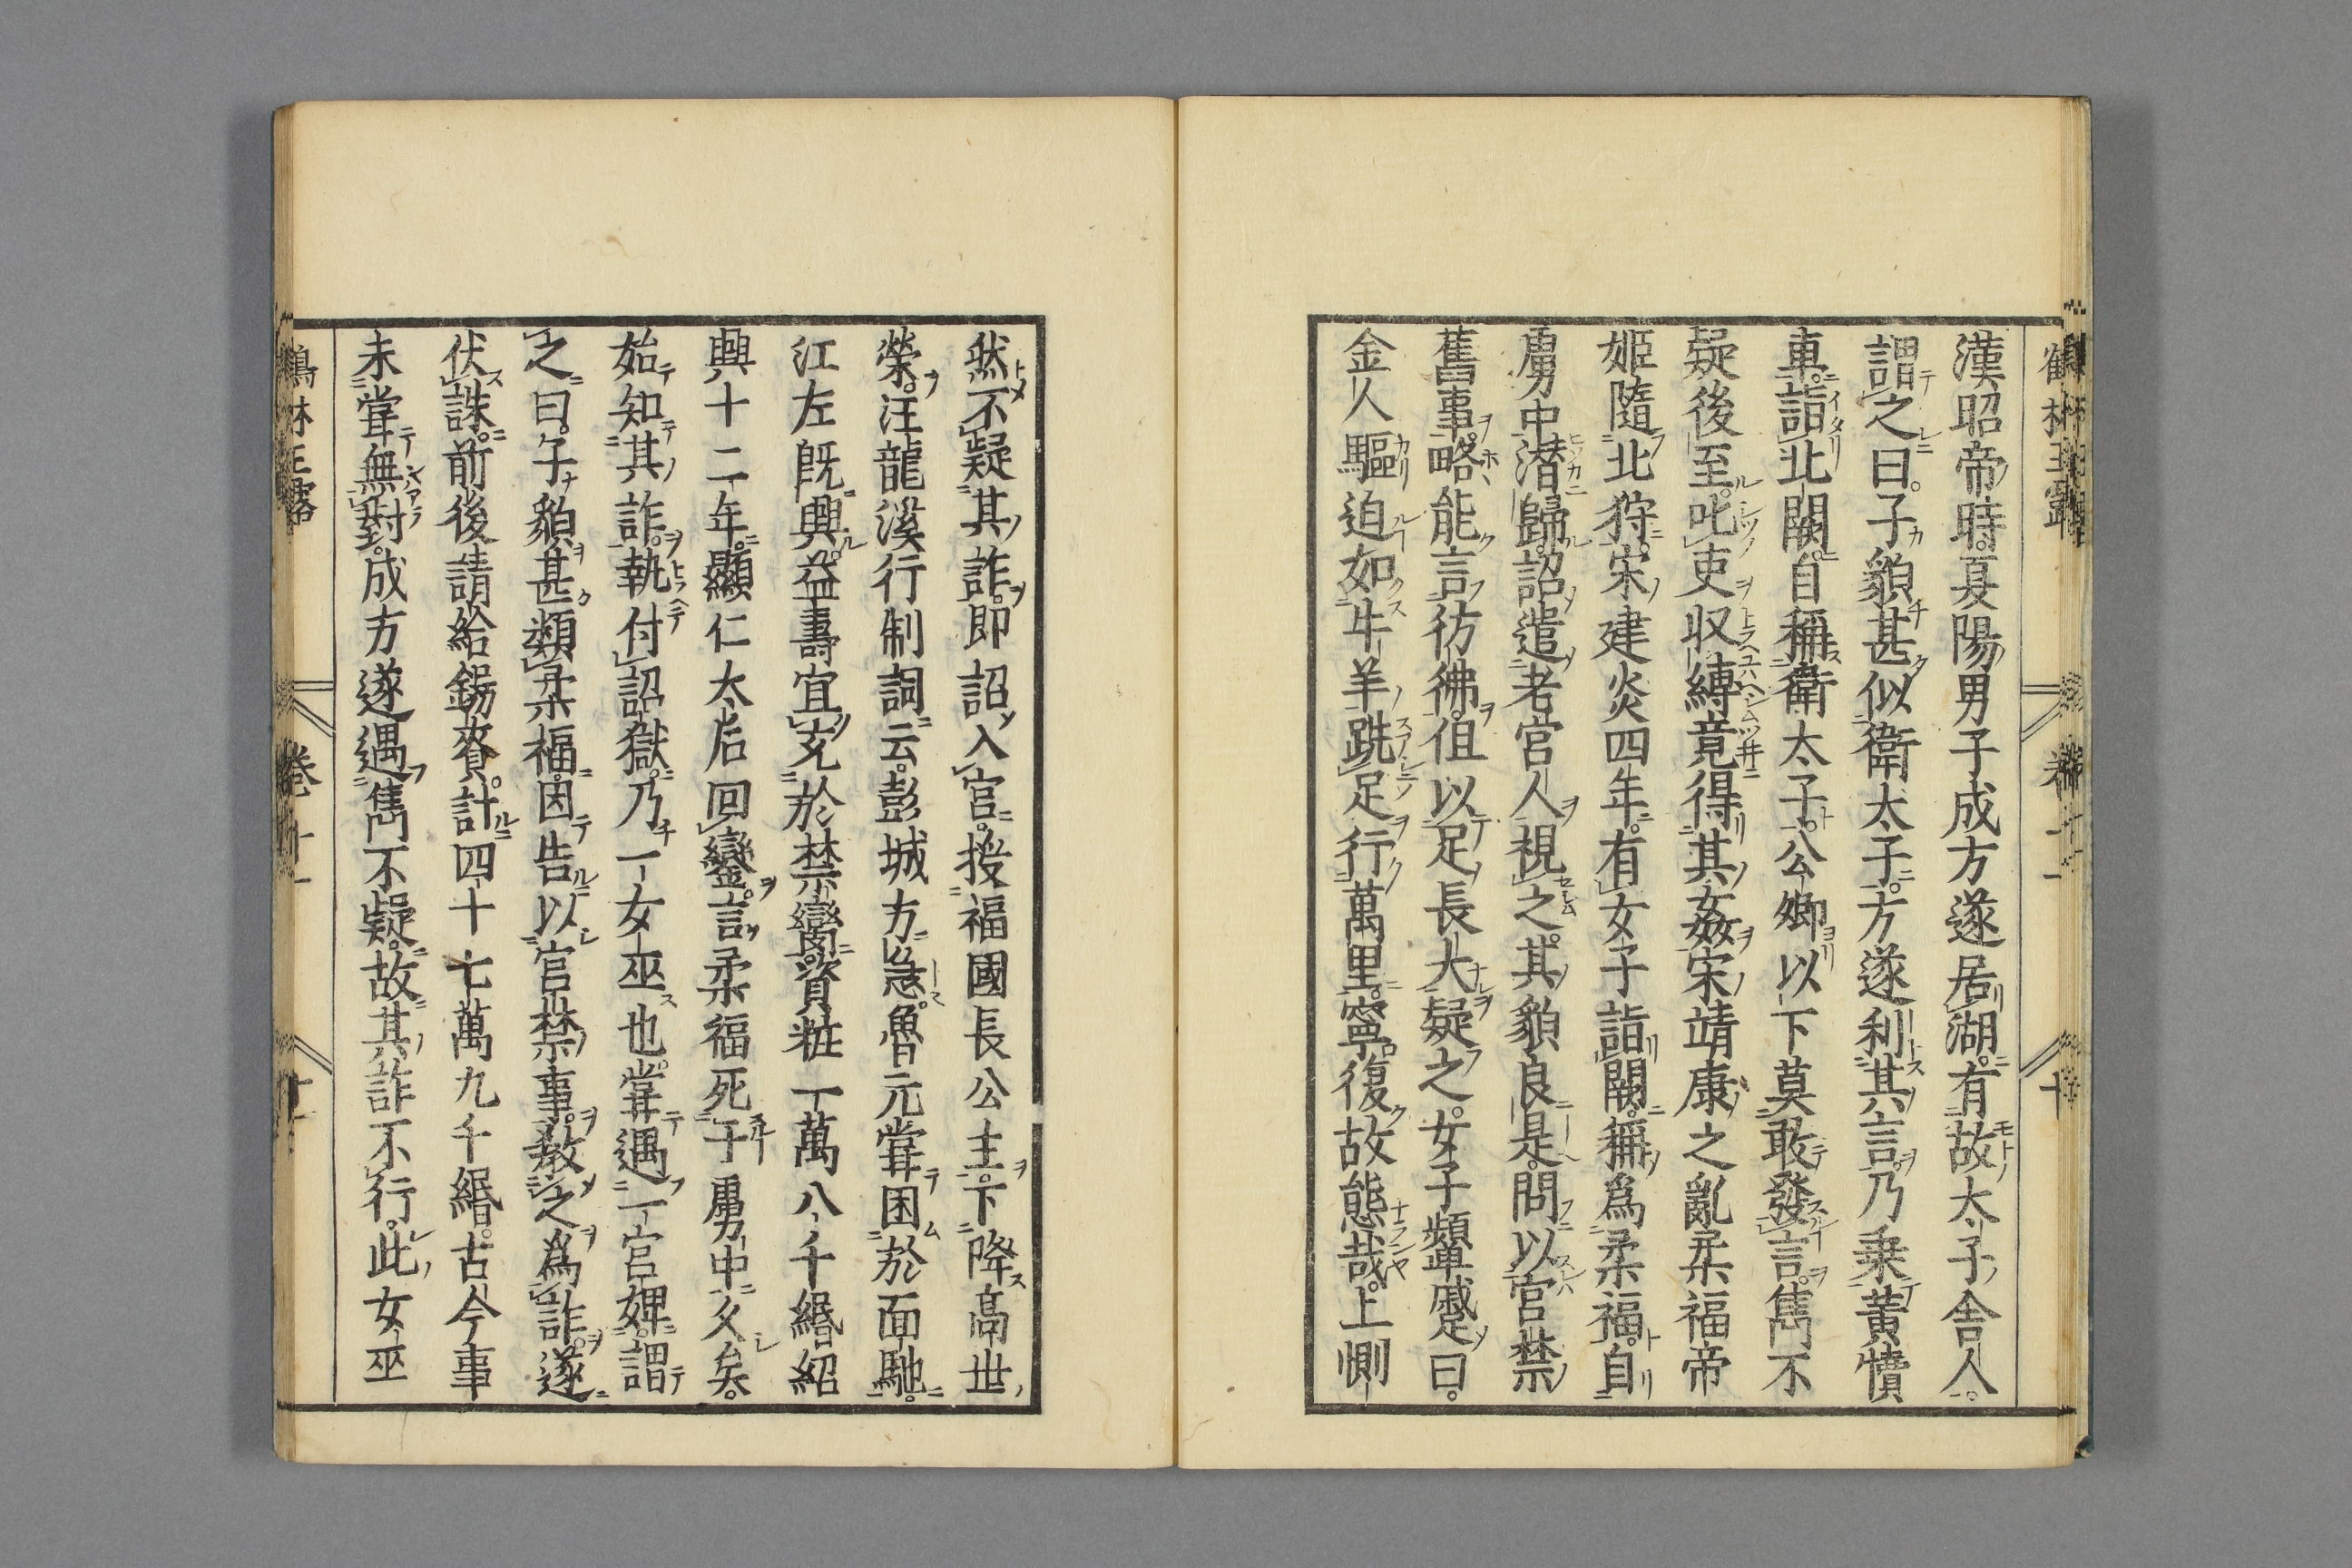 漢昭帝時。夏陽男子成方遂居湖。有故太子舍人。
謂之曰。子貌甚似衛太子。方遂利其言。乃乗黃犢
車。詣北闕。自稱衛太子。公卿以下莫敢發言。雋不
疑後至。叱吏収縛。竟得其姦。宋靖康之亂柔福帝
姬隨北狩。宋建炎四年。有女子詣闕。稱爲柔福。自
虜中潜歸。詔遣老宮人視之。其貌良是。問以宮禁
舊事。略能言彷彿。但以足長大疑之。女子顰蹙曰。
金人驅迫如牛羊。跣足行萬里。寧復故態哉。上惻
然不疑其詐。即詔入宮。授福國長公主。下降高世
榮。汪龍溪行制詞云。彭城方急。魯元嘗困於面馳。
江左既興。益壽宜充於禁臠。資粧一萬八千緡。紹
興十二年。顯仁太后回鑾。言柔福死于虜中久矣。
始知其詐。執付詔獄。乃一女巫也。嘗遇一宮婢。謂
之曰。子貌甚類柔福。因告以宮禁事。教之爲詐。遂
伏誅。前後請給錫賚。計四十七萬九千緡。古今事
未嘗無對。成方遂遇雋不疑。故其詐不行。此女巫
鶴林玉露　卷十一　十